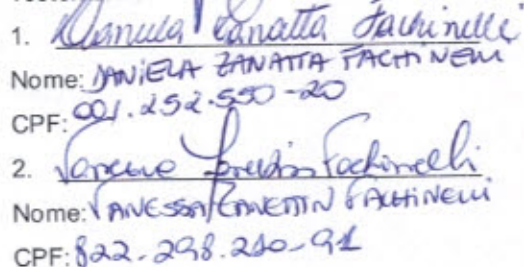 1. Daniela Zanatta Fachinelli
Nome: DANIELA ZANATTA FACHINELLI
CPF: 001.252.550-20
2. Fachinelli
Nome: VANESSA ZANETTIN FACHINELLI
CPF: 822.298.210-91